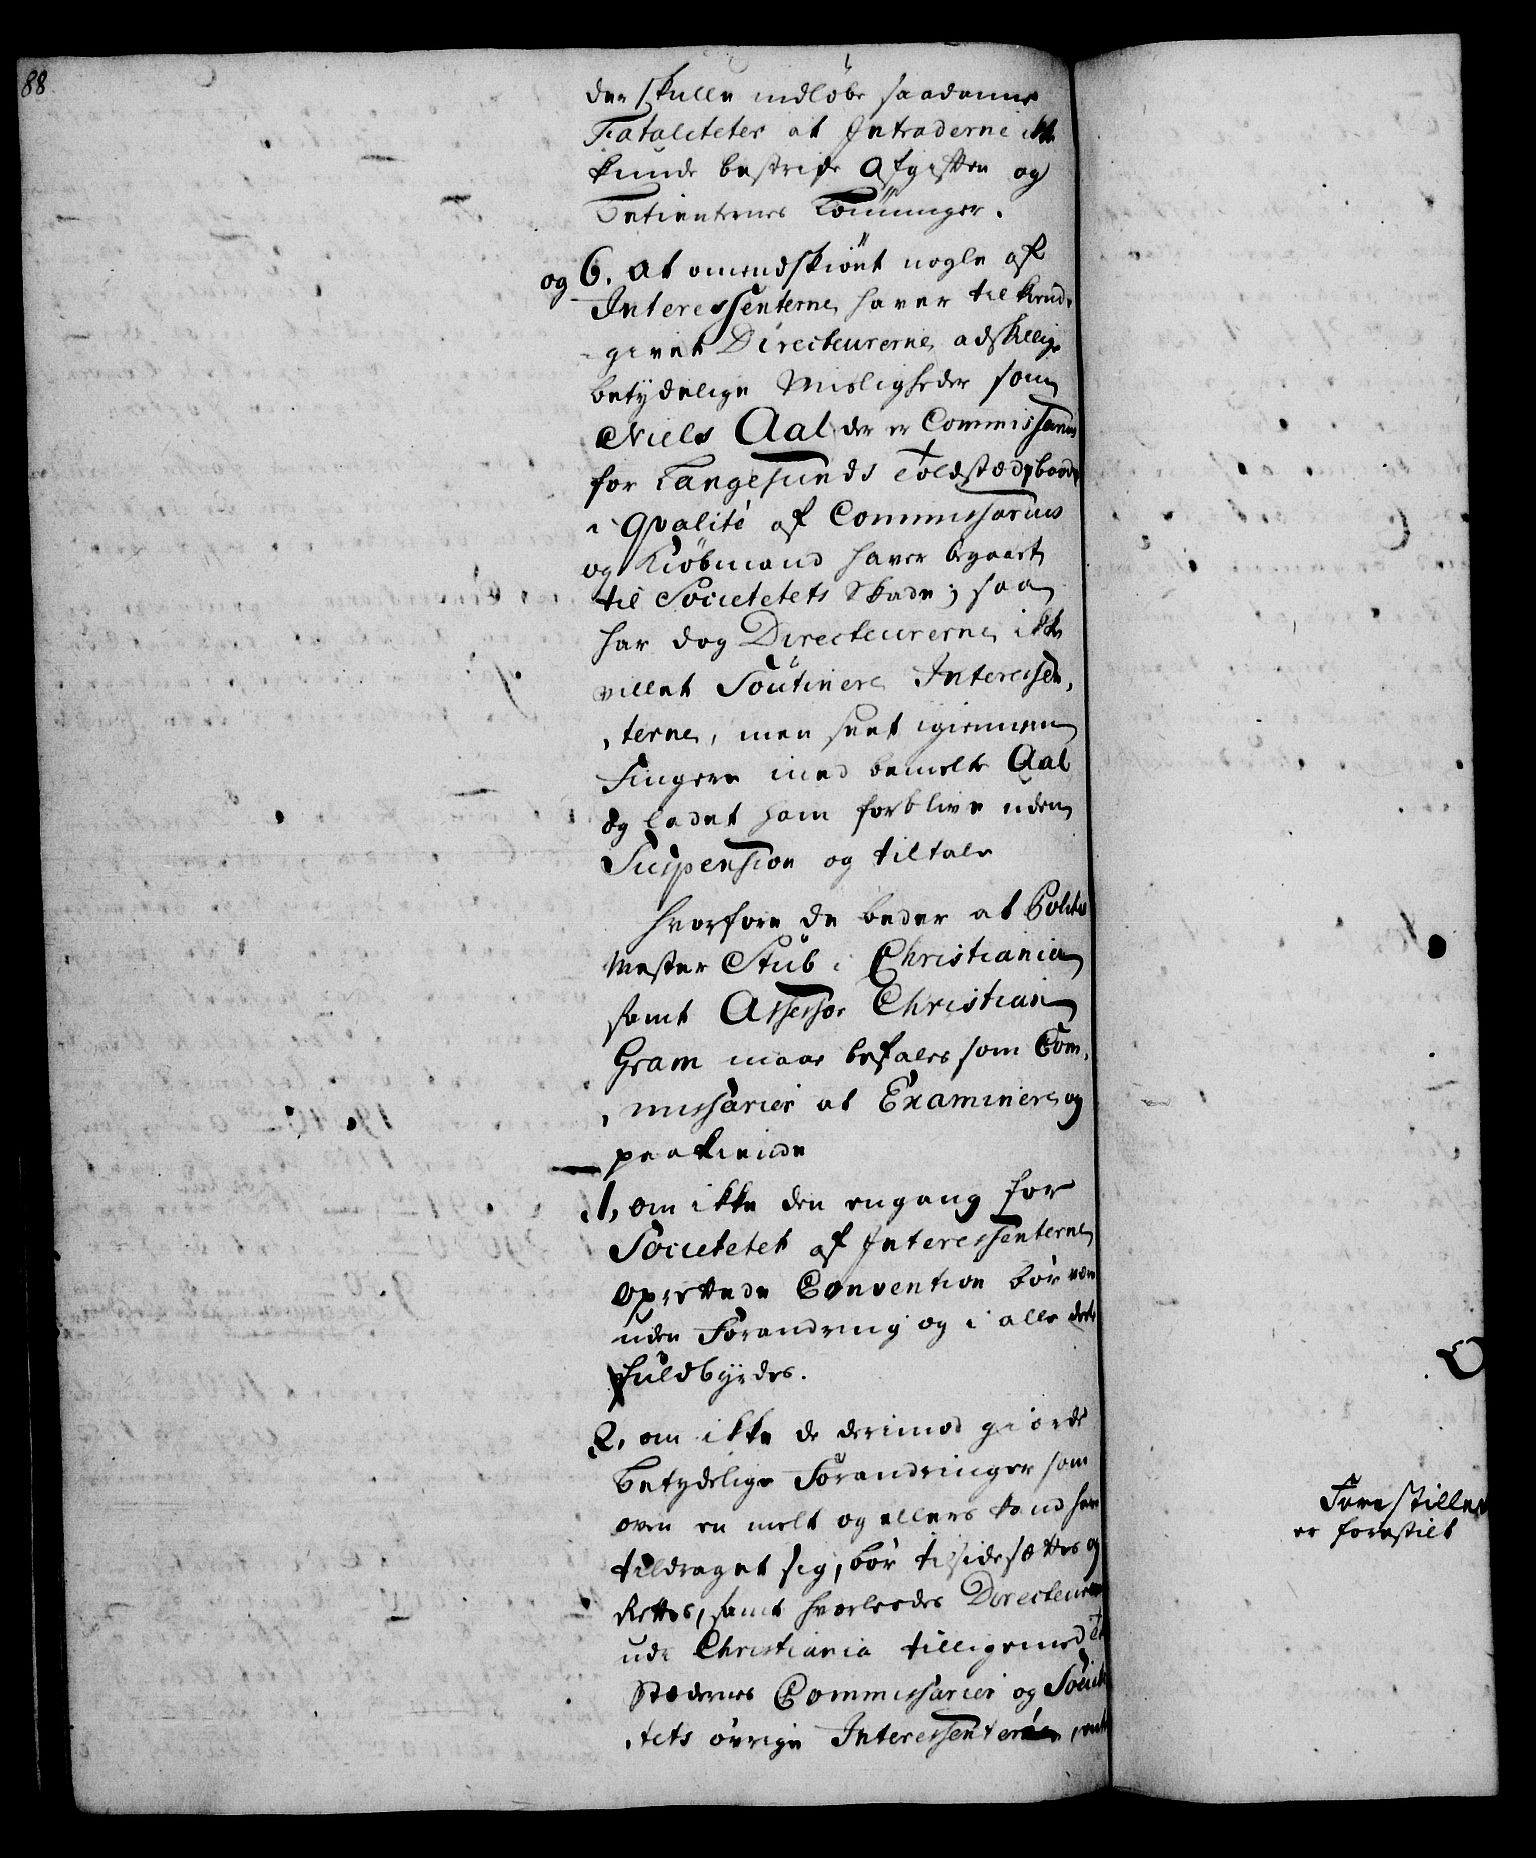 88
der skulle indløbe saadanne
Fataliteter at Intraderne ikke
kunde bestride Afgiften og
Betienternes Lønninger.
og 6. At omendskiönt nogle af
Interessenterne haver tilkiende
givet Directeurerne adskillige
betydelige Misligheder som
Niels Aal der er Commissarius
for Langesunds Toldstæd, baade
i Qvalité af Commissarius
og Kiöbmand haver begaaet
til Societetets Skade; saa
har dog Directeurerne ikke
villet Soutinere Interessen,
,terne, men seet igiennem
Fingere med bemelte Aal
og ladet ham forblive uden
Suspension og tiltale
Hvorfore de beder at Politie
Mester Stüb i Christiania
samt Assessor Christian
Gram maae befales som Com,
,missarier at Examinere og
paakiende
1, om ikke den engang for
Societetet af Interessenterne
oprettede Convention bør være
uden Forandring og i alle dele
fuldbyrdes.
2, om ikke de derimod giorde
Betydelige Forandringer som
oven er melt og ellers kand have
tildraget sig, bør tilsidesættes og
Rettes, samt hvorledes Directeurerne
udi Christiania tilligemed
Stædernes Commissarier og Societe
,tets øvrige Interessentere,
Forestilles
er forestilt